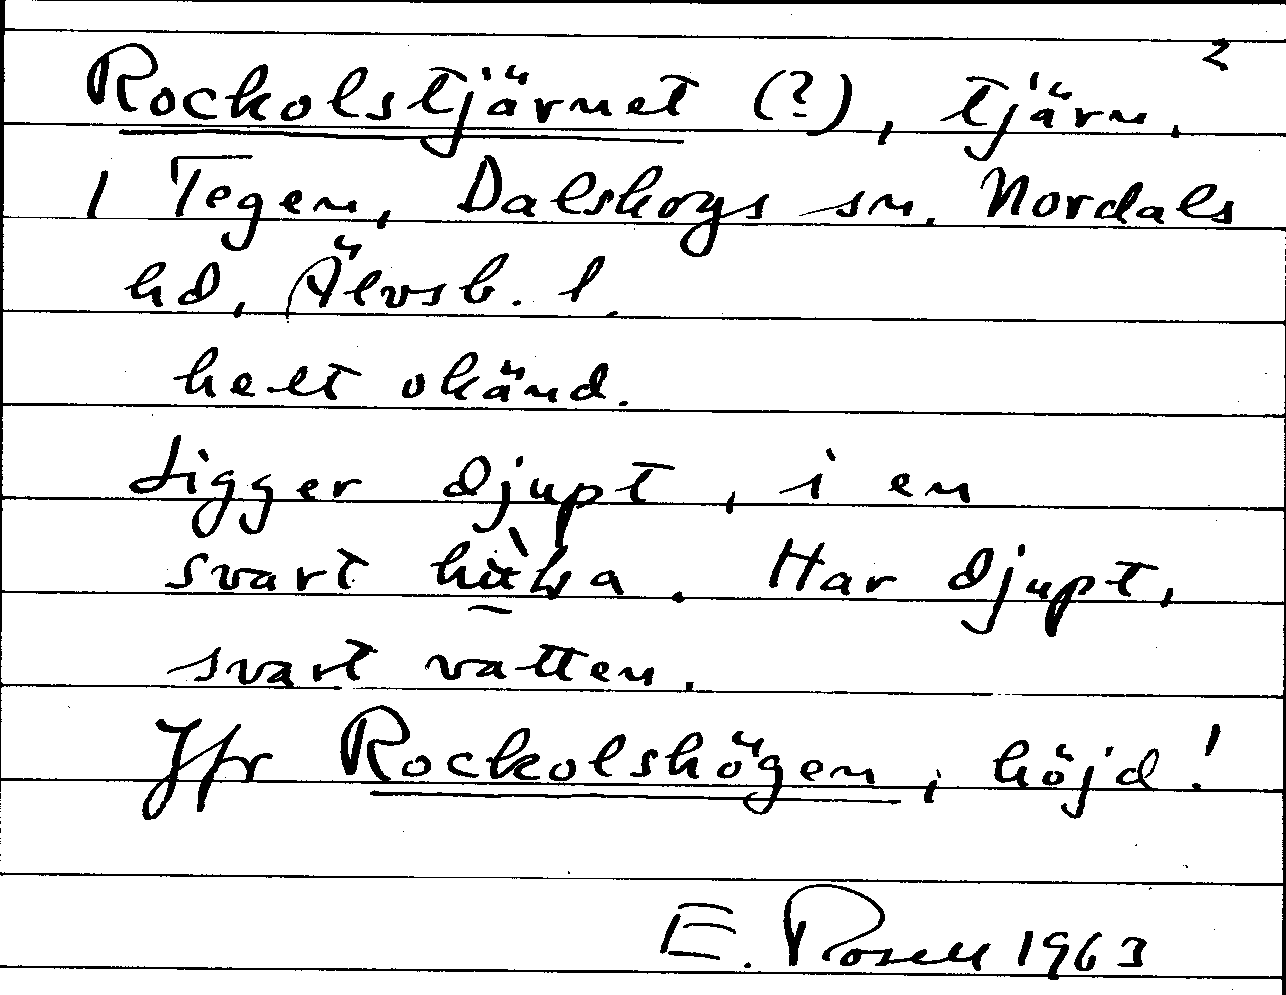 2
Rockolstjärnet (?), tjärn.
I Tegen, Dalskogs sn. Nordals
hd, Älvsb. l.
helt okänd.
Ligger djupt, i en
svart . Har djupt,
svart vatten.
Jfr Rockolshögen, höjd!
E. Rosell 1963